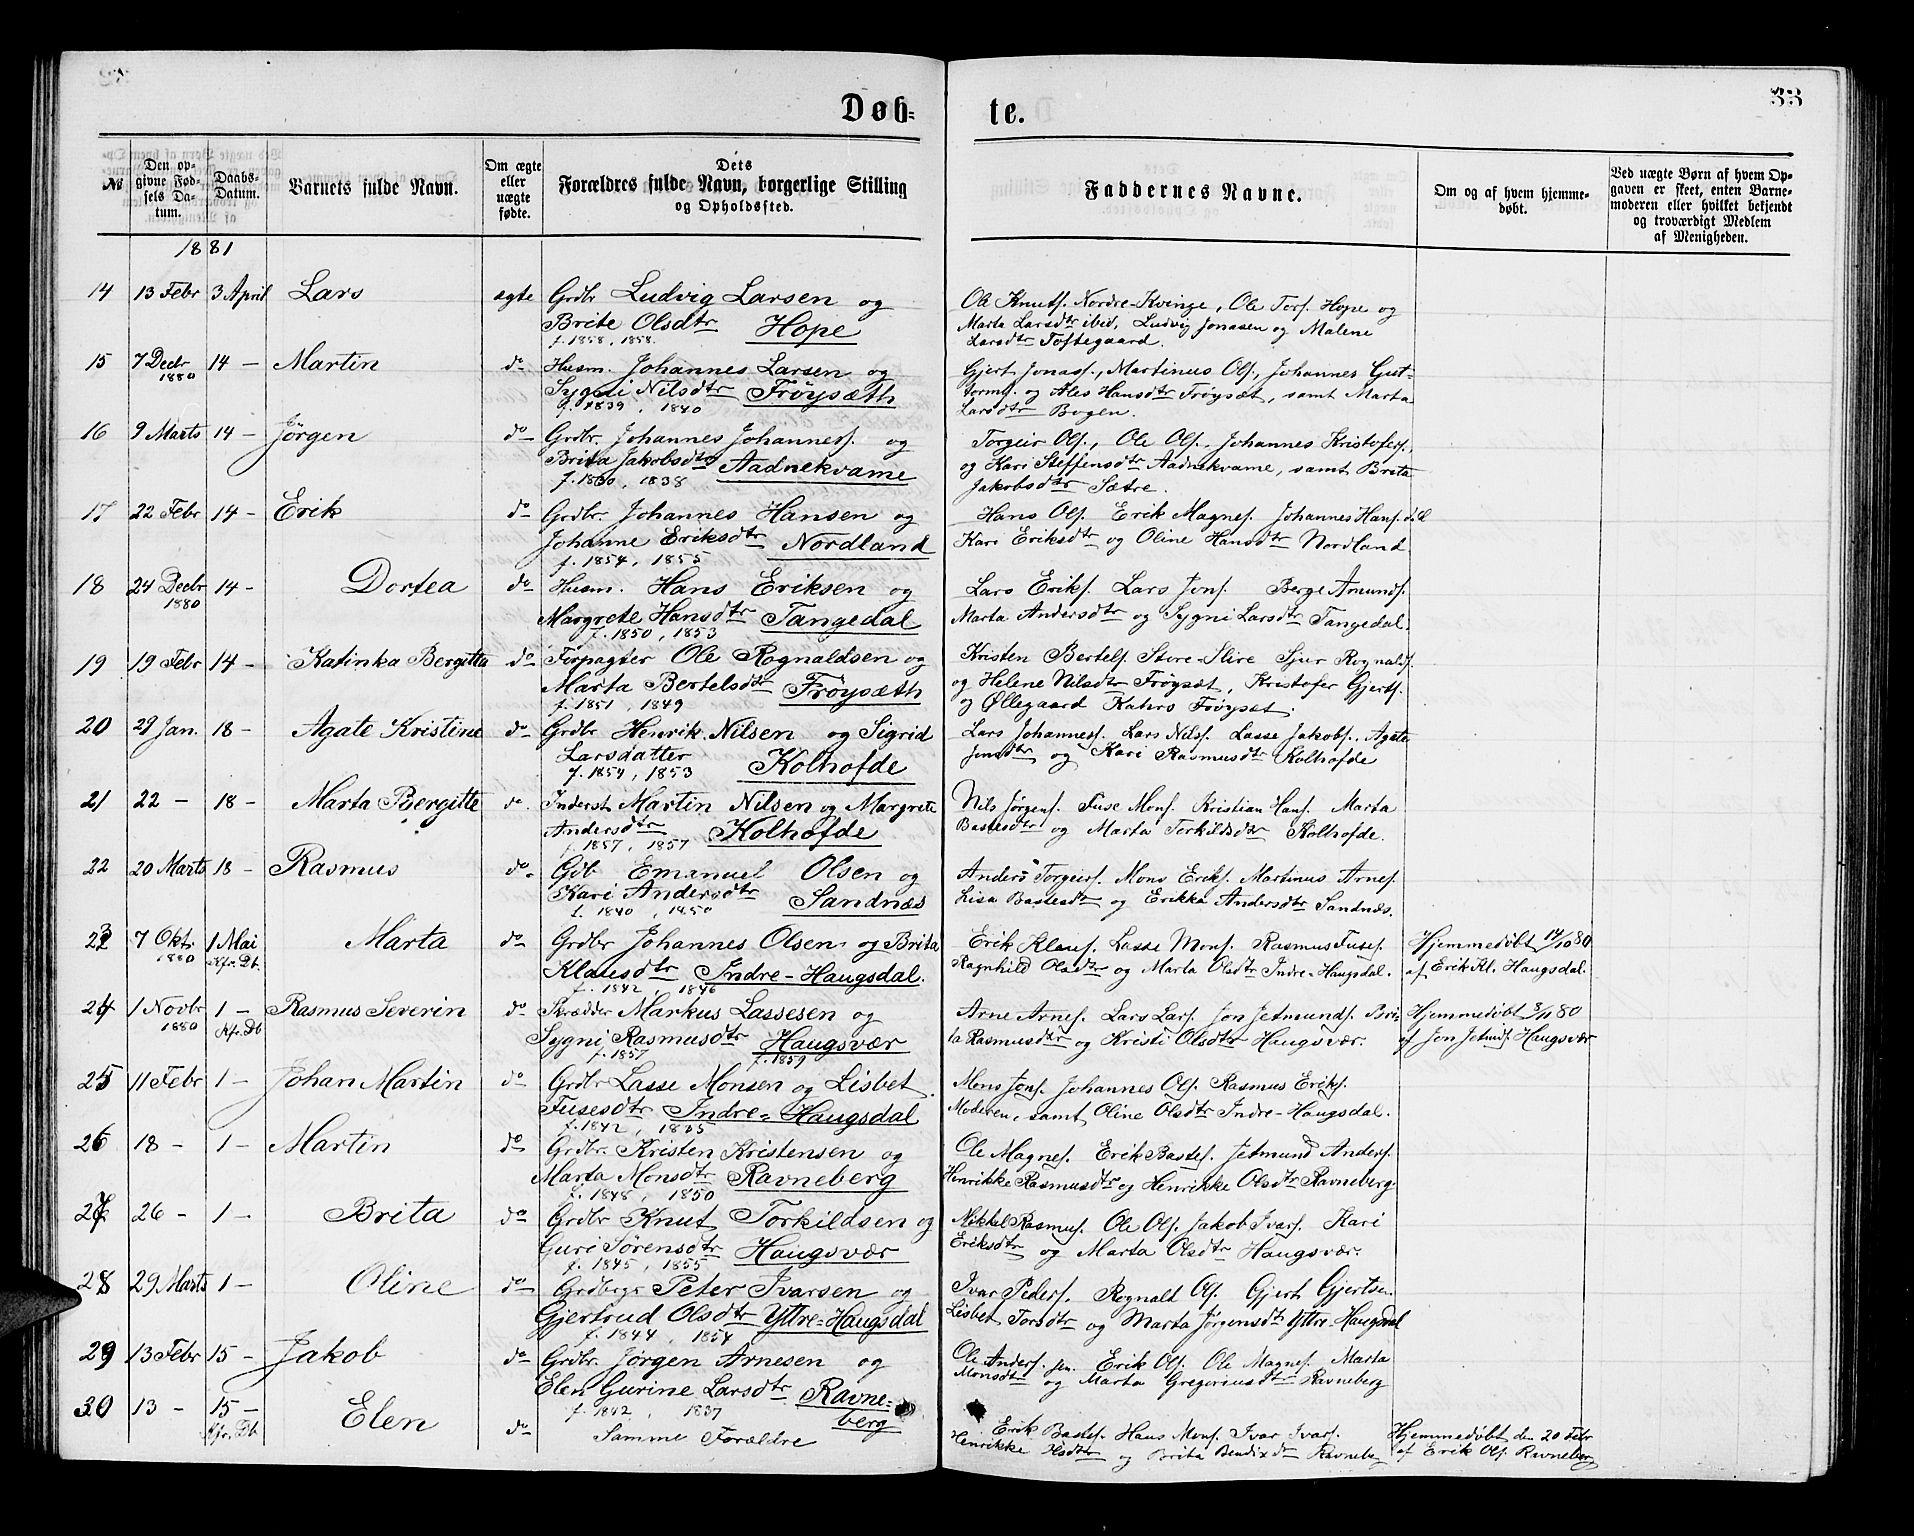 Døb=
te.
33
№
Den op-
givne Fød-
sels Da-
tum.
Daabs-
Datum.
Barnets fulde Navn.
Om ægte
eller
uægte
fødte.
Dets
Forældres fulde Navn, borgerlige Stilling
og Opholdssted.
Faddernes Navne.
Om og af hvem hjemme-
døbt.
Ved uægte Børn af hvem Op-
gaven er skeet, enten Barne-
moderen eller hvilket bekjendt
og troværdigt Medlem
af Menigheden.
1881
14 13 Febr 3 April Lars ægte Grdbr Ludvig Larsen og
Brite Olsdtr Hope
f. 1858, 1858.
Ole Knuts. Nordre-Kvinge, Ole Tors. Hope og
Marta Larsdtr ibid, Ludvig Jonasen og Malene
Larsdtr Toftegaard.
15 7 Decbr 14 - Martin do Husm. Johannes Larsen og
1880
Sygni Nilsdtr Frøysæth
f. 1839, 1840
Gjert Jonass., Martinus Ols., Johannes Gut-
torms. og Ales Hansdtr Frøysæt, samt Marta
Larsdtr Bogen.
16 9 Marts 14 - Jørgen do Grdbr. Johannes Johannes. og
Brita Jakobsdtr Aadnekvame
f. 1830, 1838
Torgeir Ols., Ole Ols., Johannes Kristofers.,
og Kari Steffensdtr Aadnekvame, samt Brita
Jakobsdtr Sætre.
17 22 Febr 14 - Erik do Grdbr. Johannes Hansen og
Johanne Eriksdtr Nordland
f. 1854, 1855
Hans Ols. Erik Magnes. Johannes Hans.
Kari Eriksdtr og Oline Hansdtr Nordland
18 24 Decbr 14 - Dortea do Husm. Hans Eriksen og
1880
Margrete Hansdtr Tangedal
f. 1850, 1853
Lars Eriks. Lars Jons. Berge Amunds.
Marta Andersdtr og Sygni Larsdtr Tangedal.
19 19 Febr 14 - Katinka Bergitta do Forpagter Ole Rognaldsen og
Marta Bertelsdtr Frøysæth
f. 1851, 1849
Kristen Bertels. Store-Slire Sjur Rognalds.
og Helene Nilsdtr Frøysæt, Kristofer Gjerts.
og Øllegaard Kahrs Frøysæt.
20 29 Jan. 18 - Agate Kristine do Grdbr Henrik Nilsen og Sigrid
Larsdatter Kolhofde
f. 1854, 1853
Lars Johannes. Lars Nils. Lasse Jakobs. Agate
Jensdtr og Kari Rasmusdtr Kolhofde
21 22 - 18 - Marta Bergitte do. Inderst Martin Nilsen og Margrete
Andersdtr Kolhofde
f. 1857, 1857
Nils Jørgens. Fuse Mons. Kristian Hans. Marta
Bastesdtr og Marta Torkildsdtr Kolhofde.
22 20 Marts 18 - Rasmus do. Gdb Emanuel Olsen og
Kari Andersdtr Sandnæs
f. 1840, 1850
Anders Torgeirs. Mons Eriks. Martinus Arnes.
Lisa Bastesdtr og Erikka Andersdtr Sandnæs.
23 7 Okt. 1 Mai Marta do Grdbr Johannes Olsen og Brita
1880 Kfr. Db.
Klausdtr Indre-Haugsdal.
f. 1842, 1846
Erik Klaus. Lasse Mons. Rasmus Fuses.
Ragnhild Olsdtr og Marta Olsdtr Indre-Haugsdal.
Hjemmedøbt 14/10 80
af Erik Kl. Haugsdal.
24 1 Novbr 1 - Rasmus Severin do Skrædder Markus Lassesen og
1880 Kfr. Db
Sygni Rasmusdtr Haugsvær
f. 1857 f. 1859
Arne Arnes. Lars Lars. Jon Jetmunds. Bri-
ta Rasmusdtr og Kristi Olsdtr Haugsvær.
Hjemmedøbt 3/11 80
af Jon Jetmds. Haugsvær
25 11 Febr 1 - Johan Martin do Grdbr Lasse Monsen og Lisbet
Fusesdtr Indre-Haugsdal
f. 1842, 1835
Mons Jons. Johannes Ols. Rasmus Eriks.
Moderen, samt Oline Olsdtr Indre-Haugsdal.
26 18 - 1 - Martin do Grdbr. Kristen Kristensen og
Marta Monsdtr Ravneberg
f. 1848, 1850
Ole Magnes. Erik Bastes. Jetmund Anders.
Henrikke Rasmusdtr og Henrikke Olsdtr Ravneberg
27 26 - 1 - Brita do Grdbr Knut Torkildsen og
Guri Sørensdtr Haugsvær
f. 1845, 1855
Nikkel Rasmus. Ole Ols. Jakob Ivars. Kari
Eriksdtr og Marta Olsdtr Haugsvær.
28 29 Marts 1 - Oline do Grdbrgr Peter Ivarsen og
Gjertrud Olsdtr Yttre-Haugsdal
f. 1844, 1854
Ivar Peders. Rognald Ols. Gjert Gjertsen.
Lisbet Torsdtr og Marta Jørgensdtr Yttre-Haugsdal
29 13 Febr 15 - Jakob do Grdbr. Jørgen Arnesen og
Elen Gurine Larsdtr Ravne-
f. 1842, 1837 berg
Ole Anders. jen. Erik Ols. Ole Magnes. Marta
Monsdtr og Marta Gregoriusdtr Ravneberg
30 13 - 15 - Elen do Samme Forældre
Kfr. Db
Erik Bastes. Hans Mons. Ivar Ivars.
Henrikke Olsdtr og Brita Bendixdtr Ravneberg
Hjemmedøbt den 20 Febr
af Erik Ols. Ravneberg